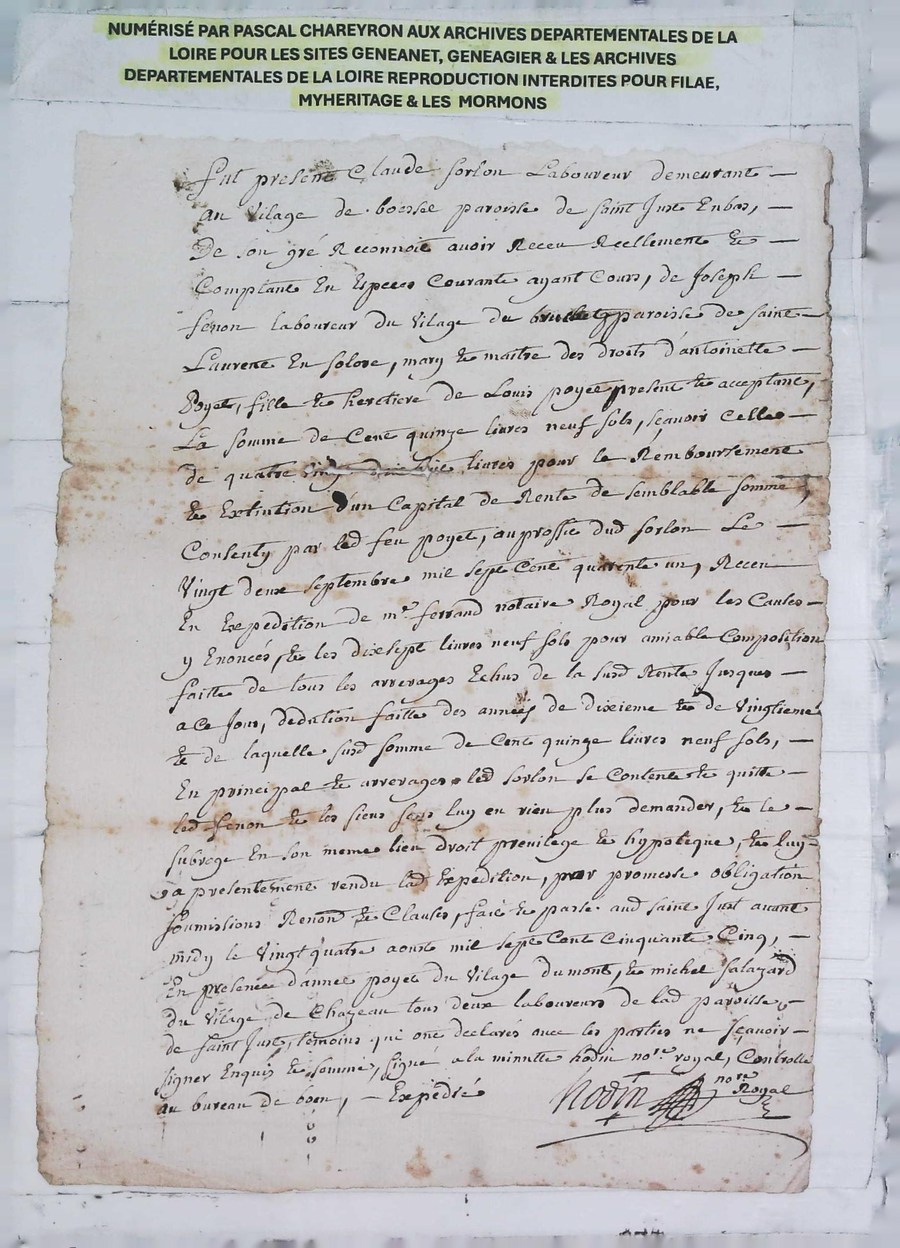 NUMÉRISÉ PAR PASCAL CHAREYRON AUX ARCHIVES DEPARTEMENTALES DE LA
LOIRE POUR LES SITES GENEANET, GENEAGIER & LES ARCHIVES
DEPARTEMENTALES DE LA LOIRE REPRODUCTION INTERDITES POUR FILAE,
MYHERITAGE & LES MORMONS
fut present Claude sorlon Laboureur demeurant
au vilage de paroisse de saint Just Enbas,
De son gré Reconnoit avoir Receu Reellement et
Comptant En Especes Courante ayant Cours, de Joseph
fenon laboureur du vilage du paroisse de saint
Laurent En solore, mary et maitre des droits d'antoinette
Poyet, fille et heritiere de Louis poyet present et acceptant,
La somme de Cent quinze livres neuf sols, sçavoir Celle
de quatre livres pour le Remboursement
et Extintion d'un Capital de Rente de semblable somme,
Consenty par led feu poyet, au proffit dud sorlon Le
Vingt deux septembre mil sept Cent quarente un, Receu
En Expedition de me. ferrand notaire Royal pour les Causes
y Enoncés, et les dixsept livres neuf sols pour amiable Composition
faitte de tous les arrerages Echus de la susd Rente Jusques
a ce Jour, dedution faitte des années de dixieme et de vingtieme
et de laquelle susd somme de Cent quinze livres neuf sols,
En principal et arrerages led sorlon se Contente et quitte
led fenon et les siens sens luy en rien plus demander, et le
subroge En son meme lieu droit previlege et hypoteque, et luy
a presentement rendu lad Expedition, par promesse obligation
soumissions Renon et Clauses, fait et passé aud saint Just avant
midy le vingt quatre aoust mil sept Cent Cinquante Cinq,
En presence d'annet poyet du vilage dumont, et michel salazard
du vilage de Chazeau tous deux laboureurs de lad paroisse
de saint Just, temoins qui ont declarés avec les parties ne sçavoir
signer Enquis et sommé, signé a la minutte Rodin nore. royal, Controllé
au bureau de boen, Expedié
Rodin nore. Royal